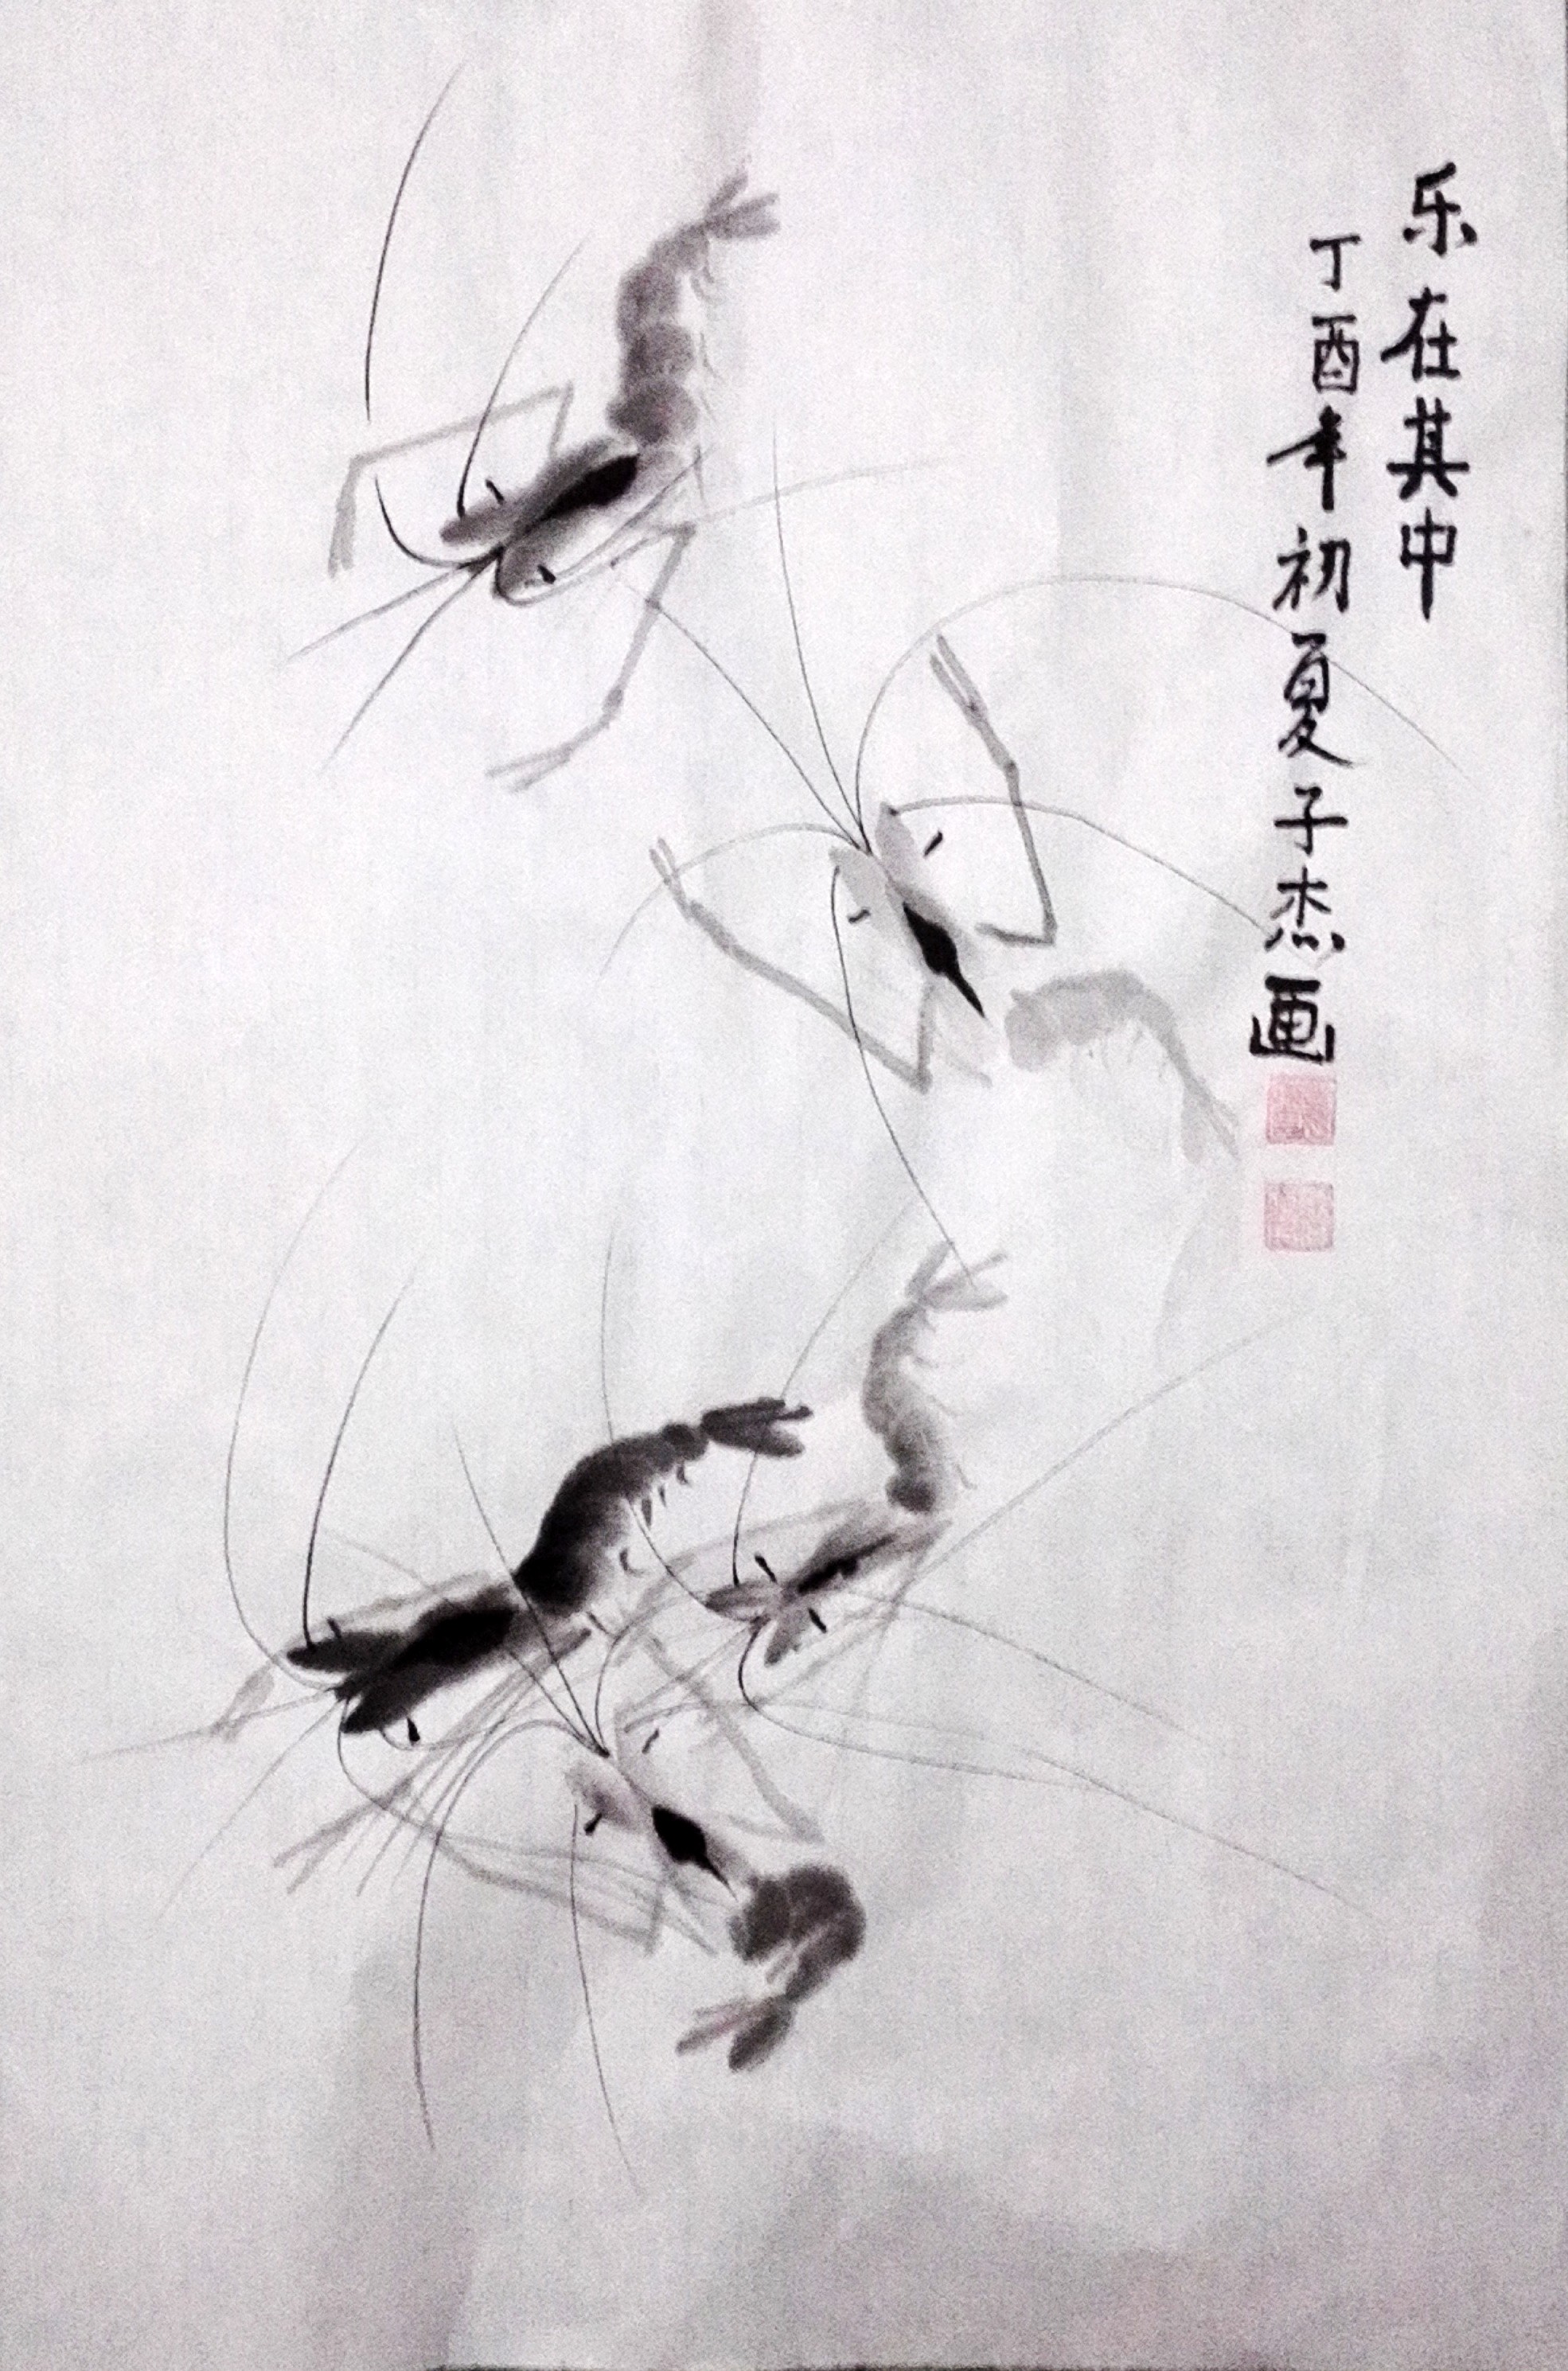 乐在其中
丁酉年初夏子杰画